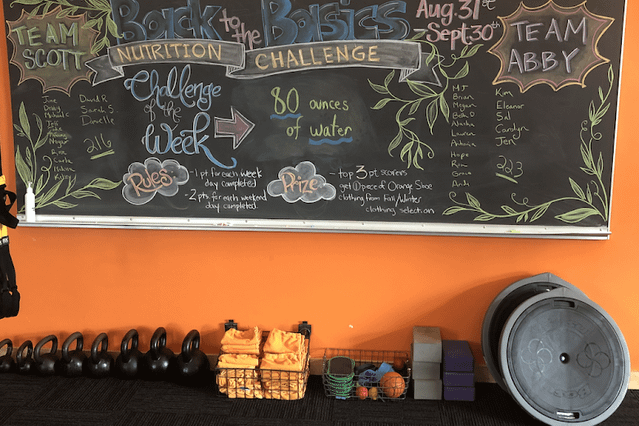 Back to the Basics
NUTRITION CHALLENGE
Aug. 31st
Sept. 30th
TEAM
SCOTT
David R
Sarah S
Danielle
216
Challenge
of the
Week
80 ounces
of water
Rules
- 1 pt for each week
day completed
- 2 pts for each weekend
day completed.
Prize
- top 3 pt scorers
get 1 piece of Orange Shoe
clothing from Fall/Winter
clothing selection
TEAM
ABBY
MJ
Brian
Megan
Hope
Kim
Eleanor
Sal
Carolyn
Jen
223